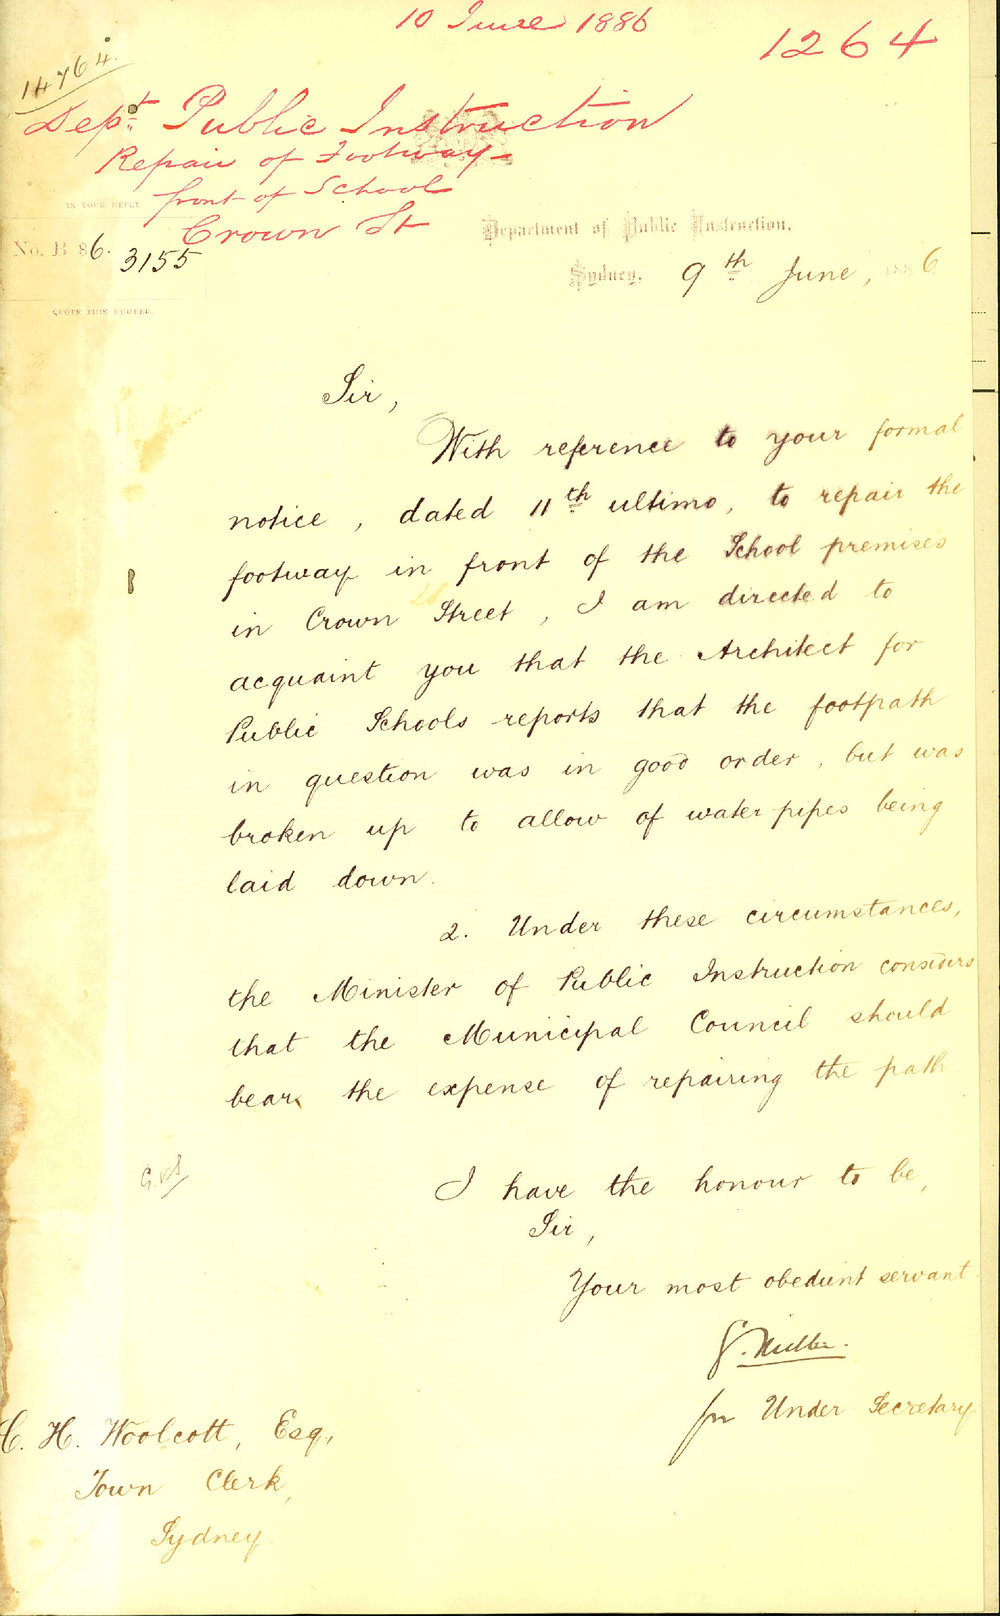 10 June 1886
1264
14764.
Dept. Public Instruction
Repair of Footway
front of School
Crown St
IN YOUR REPLY
No. B 86. 3155
QUOTE THIS NUMBER.
Department of Public Instruction,
Sydney, 9th June, 1886
Sir,
With reference to your formal
notice, dated 11th ultimo, to repair the
footway in front of the School premises
in Crown Street, I am directed to
acquaint you that the Architect for
Public Schools reports that the footpath
in question was in good order, but was
broken up to allow of water pipes being
laid down.
2. Under these circumstances,
the Minister of Public Instruction considers
that the Municipal Council should
bear the expense of repairing the path
I have the honour to be,
Sir,
Your most obedient servant
G. Miller.
for Under Secretary
C. H. Woolcott, Esq,
Town Clerk,
Sydney.